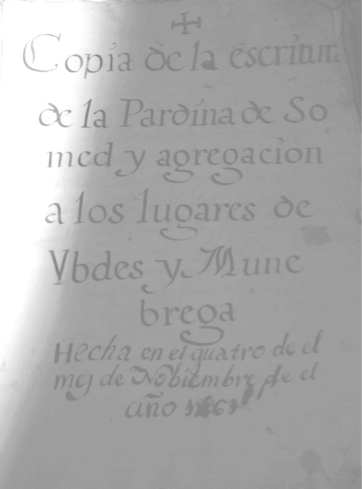 Copia de la escritura
de la Pardina de So
med y agregacion
a los lugares de
Ybdes y Mune
brega
Hecha en el quatro de el
mes de Nobiembre de el
año